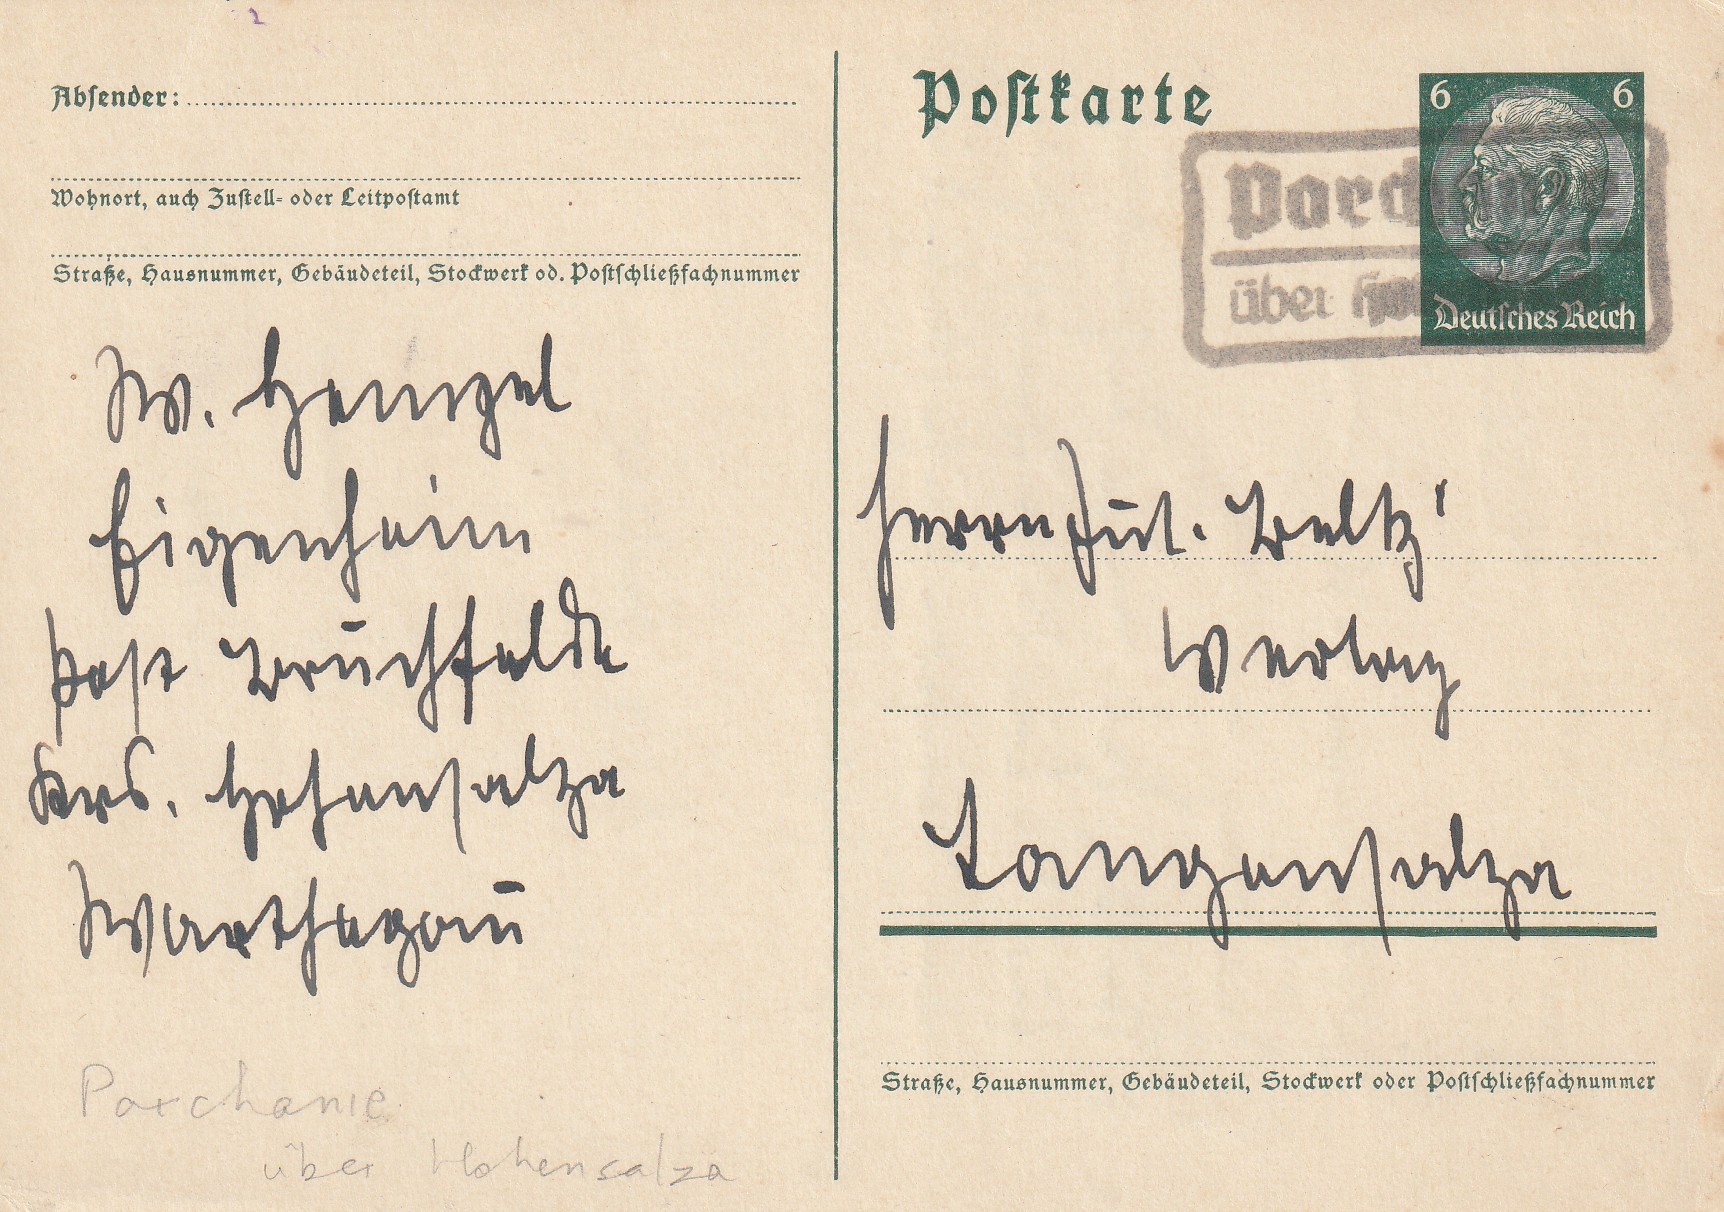 Absender:
Wohnort, auch Zustell- oder Leitpostamt
Straße, Hausnummer, Gebäudeteil, Stockwerk od. Postschließfachnummer
W. Hempel
Eigenheim
Post Bruchfelde
Krs. Hohensalza
Warthegau
Parchanie
über Hohensalza
Postkarte
6 6
Deutsches Reich
Parchanie
über
Herrn Jul. Beltz'
Verlag
Langensalza
Straße, Hausnummer, Gebäudeteil, Stockwerk oder Postschließfachnummer